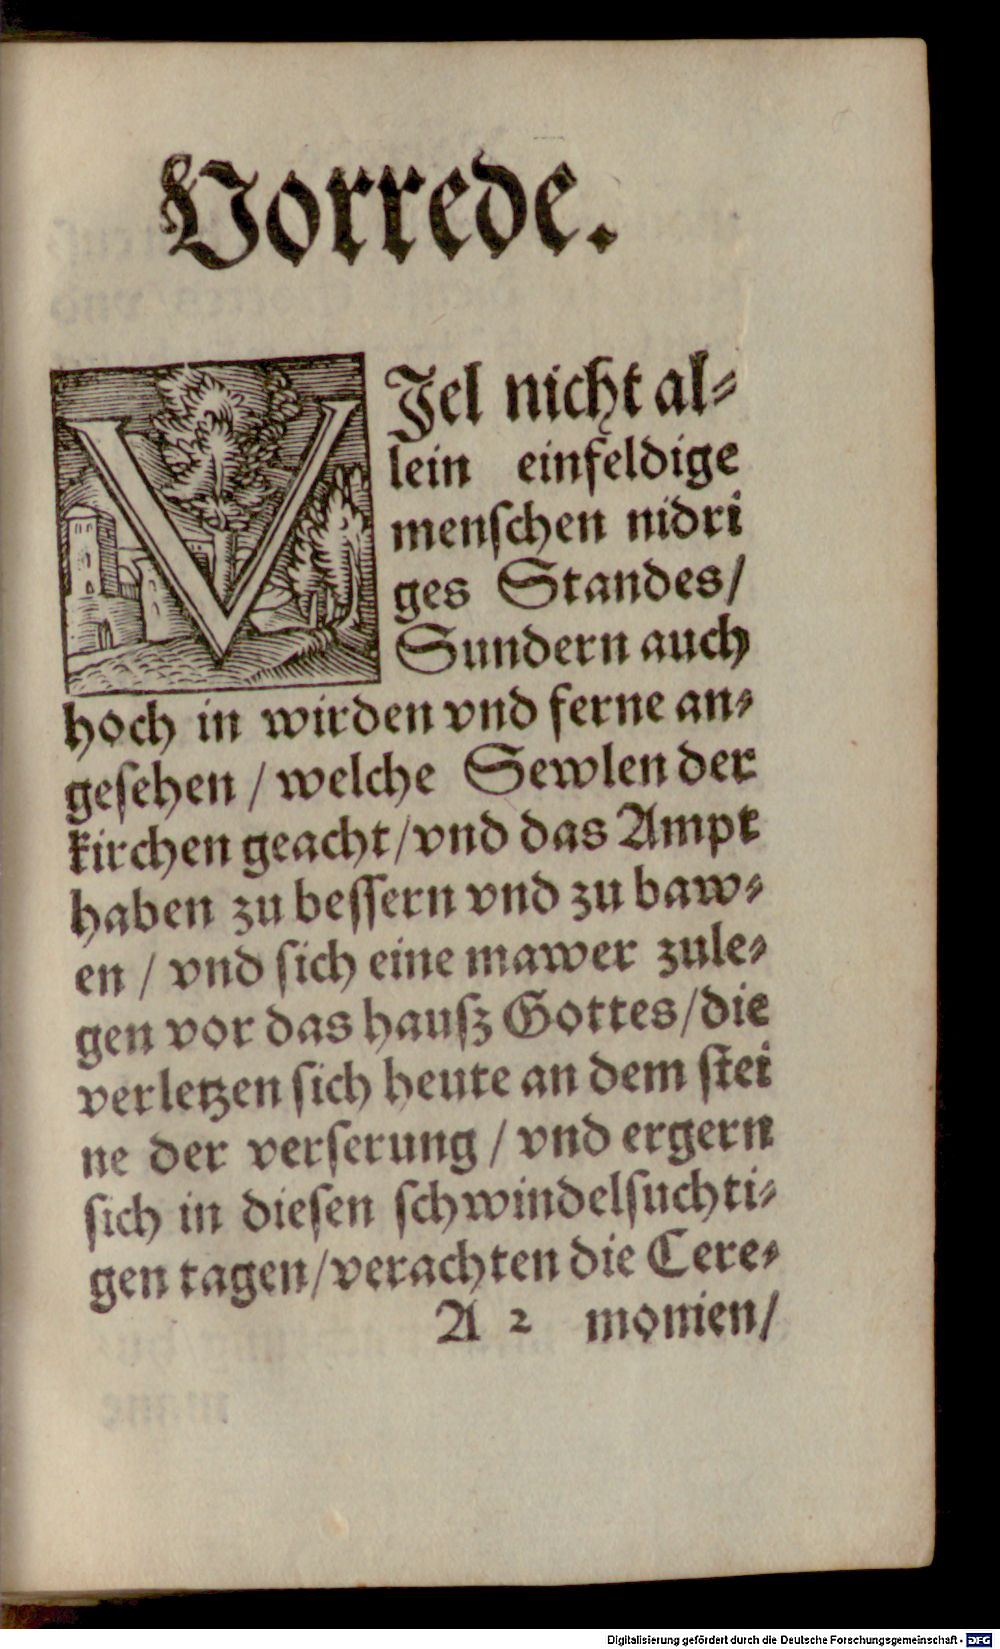 Vorrede.
VJel nicht al⸗
lein einfeldige
menſchen nidri
ges Standes/
Sundern auch
hoch in wirden vnd ferne an⸗
geſehen / welche Sewlen der
kirchen geacht/vnd das Ampt
haben zu beſſern vnd zu baw⸗
en / vnd ſich eine mawer zule⸗
gen vor das hauſz Gottes/die
verletzen ſich heute an dem ſtei
ne der verſerung / vnd ergern
ſich in dieſen ſchwindelſuchti⸗
gen tagen/verachten die Cere⸗
A 2 monien/
Digitalisierung gefördert durch die Deutsche Forschungsgemeinschaft - DFG